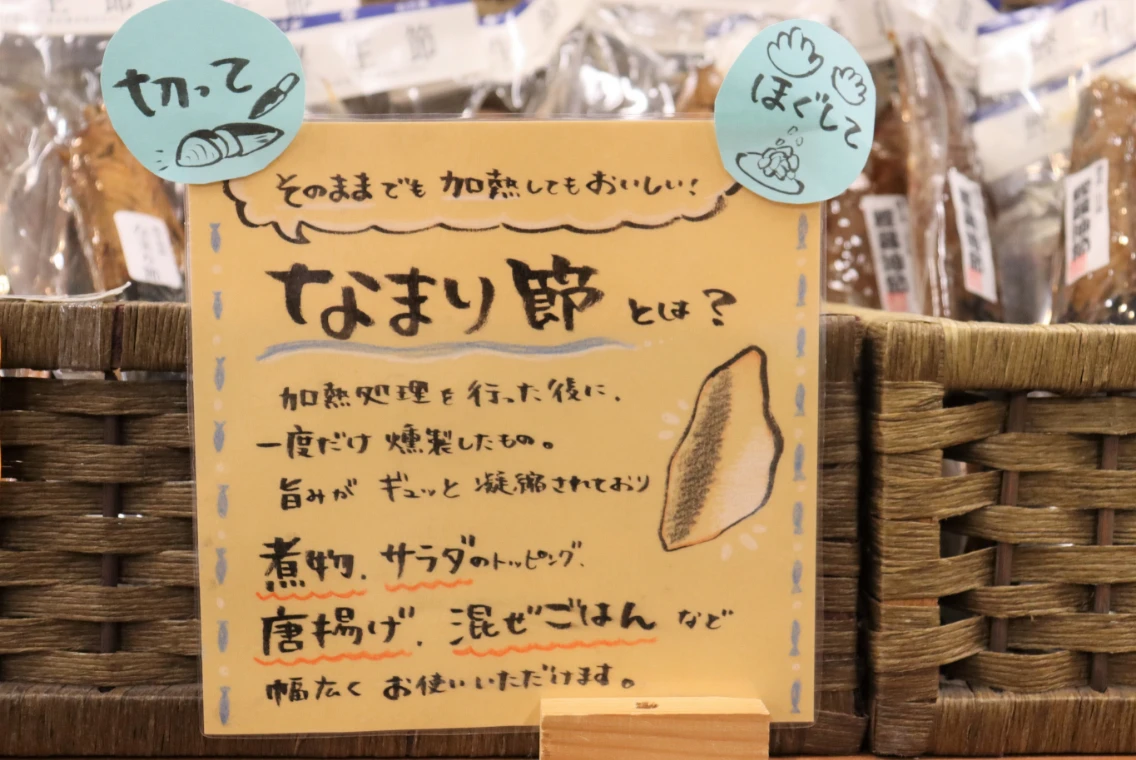 切って
ほぐして
そのままでも加熱してもおいしい!
なまり節とは?
加熱処理を行った後に、
一度だけ燻製したもの。
旨みがギュッと凝縮されており
煮物、サラダのトッピング、
唐揚げ、混ぜごはんなど
幅広くお使いいただけます。